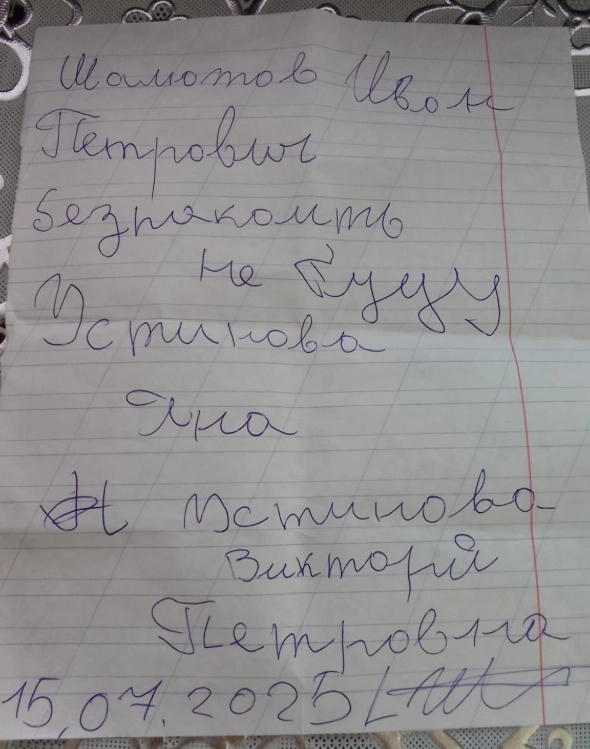 Шамотов Ивон
Петрович
безпакомть
не буцу
Устинова
Яна
Устинова
Викторй
Петровна
15.07.2025